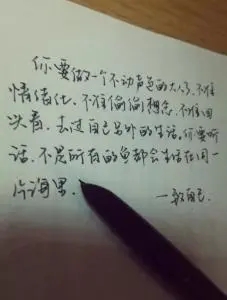 你要做一个不动声色的大人了。不准
情绪化,不准偷偷想念,不准回
头看。去过自己另外的生活。你要听
话,不是所有的鱼都会生活在同一
片海里。
—致自己.